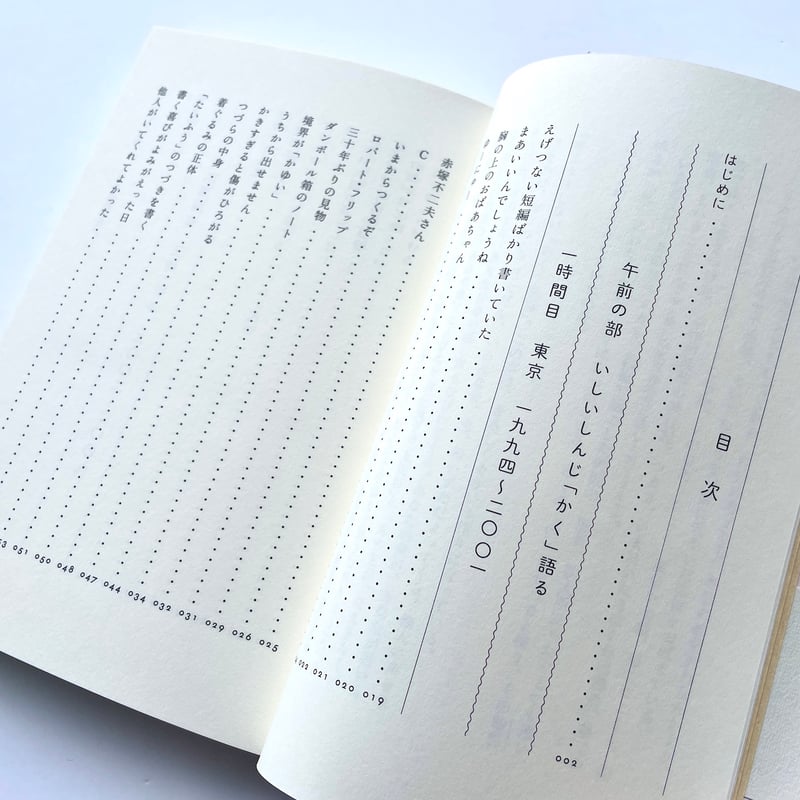 目次
はじめに……002
午前の部 いしいしんじ「かく」語る
一時間目 東京 一九九四〜二〇〇一
えげつない短編ばかり書いていた……019
まあいいんでしょうね……020
の上のおばあちゃん……021
022
赤塚不二夫さん
C
いまからつくるぞ
ロバート・フリップ
三十年ぶりの見物
ダンボール箱のノート
境界が「かゆい」
うちから出せません
かきすぎると傷がひろがる
つづらの中身
着ぐるみの正体
「たいふう」のつづきを書く
書く喜びがよみがえった日
他人がいてくれてよかった
025
026
029
031
032
034
044
047
048
050
051
53